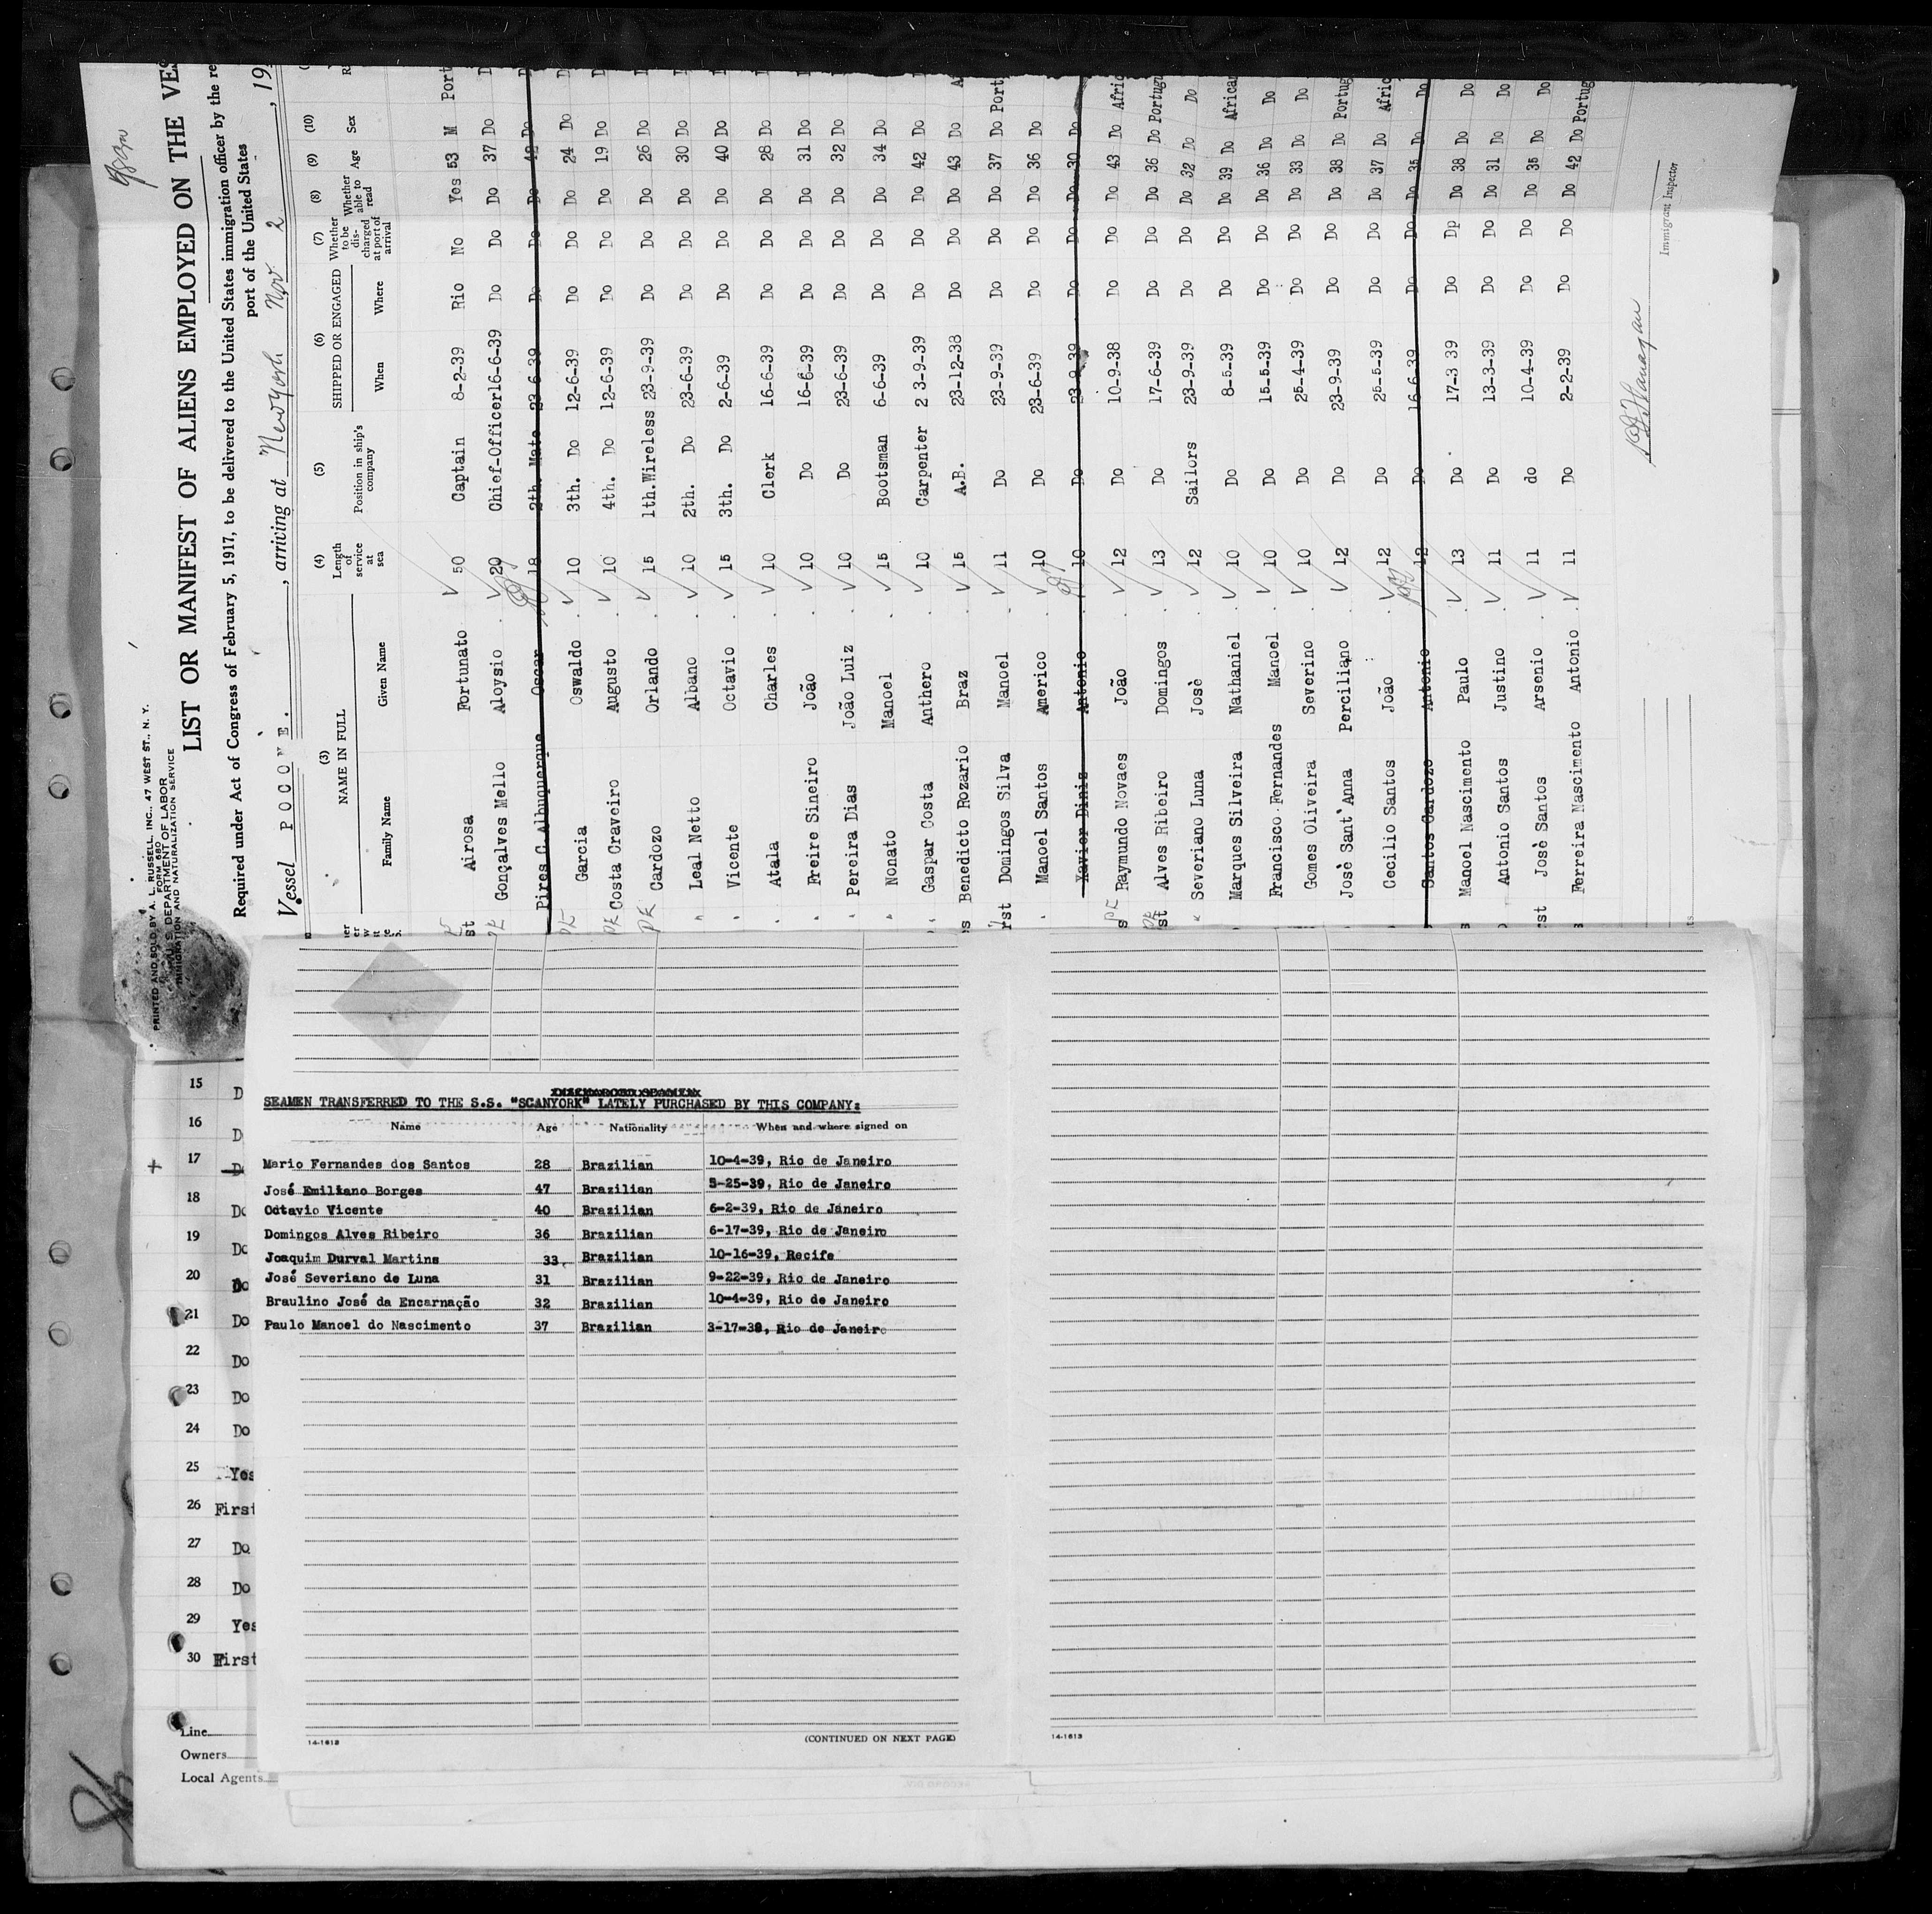 PRINTED AND SOLD BY A. L. RUSSELL, INC., 47 WEST ST., N. Y.
FORM 680
U. S. DEPARTMENT OF LABOR
IMMIGRATION AND NATURALIZATION SERVICE
LIST OR MANIFEST OF ALIENS EMPLOYED ON THE VES
Required under Act of Congress of February 5, 1917, to be delivered to the United States immigration officer by the re
port of the United States
Vessel POCONE. , arriving at New York Nov 2 , 19
(3) (4) (5) (6) (7) (8) (9) (10)
NAME IN FULL Length of service at sea Position in ship's company SHIPPED OR ENGAGED Whether to be discharged at port of arrival Whether able to read Age Sex R
Family Name Given Name When Where
st Airosa Fortunato 50 Captain 8-2-39 Rio No Yes 53 M Port
Gonçalves Mello Aloysio 20 Chief-Officer 16-6-39 Do Do Do 37 Do D
Pires C. Albuquerque Oscar 18 2th. Mate 23-6-39 Do Do Do 42 Do D
Garcia Oswaldo 10 3th. Do 12-6-39 Do Do Do 24 Do D
Costa Craveiro Augusto 10 4th. Do 12-6-39 Do Do Do 19 Do D
Cardozo Orlando 15 1th. Wireless 23-9-39 Do Do Do 26 Do D
Leal Netto Albano 10 2th. Do 23-6-39 Do Do Do 30 Do D
Vicente Octavio 15 3th. Do 2-6-39 Do Do Do 40 Do D
Atala Charles 10 Clerk 16-6-39 Do Do Do 28 Do D
Freire Sineiro João 10 Do 16-6-39 Do Do Do 31 Do D
Pereira Dias João Luiz 10 Do 23-6-39 Do Do Do 32 Do D
Nonato Manoel 15 Bootsman 6-6-39 Do Do Do 34 Do D
Gaspar Costa Anthero 10 Carpenter 2 3-9-39 Do Do Do 42 Do D
s Benedicto Rozario Braz 15 A.B. 23-12-38 Do Do Do 43 Do A
rst Domingos Silva Manoel 11 Do 23-9-39 Do Do Do 37 Do Port
Manoel Santos Americo 10 Do 23-6-39 Do Do Do 36 Do D
Xavier Diniz Antonio 10 Do 23-9-39 Do Do Do 30 Do D
s Raymundo Novaes João 12 Do 10-9-38 Do Do Do 43 Do Afric
st Alves Ribeiro Domingos 13 Do 17-6-39 Do Do Do 36 Do Portugu
Severiano Luna Josè 12 Sailors 23-9-39 Do Do Do 32 Do Do
Marques Silveira Nathaniel 10 Do 8-5-39 Do Do Do 39 Do African
Francisco Fernandes Manoel 10 Do 15-5-39 Do Do Do 36 Do Do
Gomes Oliveira Severino 10 Do 25-4-39 Do Do Do 33 Do Do
Josè Sant'Anna Perciliano 12 Do 23-9-39 Do Do Do 38 Do Portug
Cecilio Santos João 12 Do 25-5-39 Do Do Do 37 Do Afric
Santos Cardozo Antonio 12 Do 16-6-39 Do Do Do 35 Do Do
s Manoel Nascimento Paulo 13 Do 17-3 39 Do Dp Do 38 Do Do
Antonio Santos Justino 11 Do 13-3-39 Do Do Do 31 Do Do
st Josè Santos Arsenio 11 do 10-4-39 Do Do Do 35 Do Do
s Ferreira Nascimento Antonio 11 Do 2-2-39 Do Do Do 42 Do Portug
Immigrant Inspector
SEAMEN TRANSFERRED TO THE S.S. "SCANYORK" LATELY PURCHASED BY THIS COMPANY:
Name Age Nationality When and where signed on
Mario Fernandes dos Santos 28 Brazilian 10-4-39, Rio de Janeiro
José Emiliano Borges 47 Brazilian 5-25-39, Rio de Janeiro
Octavio Vicente 40 Brazilian 6-2-39, Rio de Janeiro
Domingos Alves Ribeiro 36 Brazilian 6-17-39, Rio de Janeiro
Joaquim Durval Martins 33 Brazilian 10-16-39, Recife
José Severiano de Luna 31 Brazilian 9-22-39, Rio de Janeiro
Braulino José da Encarnação 32 Brazilian 10-4-39, Rio de Janeiro
Paulo Manoel do Nascimento 37 Brazilian 3-17-39, Rio de Janeiro
14-1612
(CONTINUED ON NEXT PAGE)
14-1613
15 D
16 D
17 Do
18 Do
19 Do
20 Do
21 Do
22 Do
23 Do
24 Do
25 Yes
26 First
27 Do
28 Do
29 Yes
30 First
Line
Owners
Local Agents